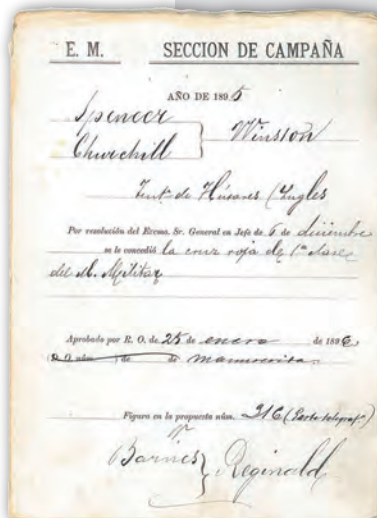 E. M. SECCION DE CAMPAÑA
AÑO DE 1895
Spencer
Churchill } Winston
Tente de Húsares (Ingles
Por resolución del Excmo. Sr. General en Jefe de 6 de diciembre
se le concedió la cruz roja de 1ª clase
del M. Militar
Aprobado por R. O. de 25 de enero de 1896
(D. O. núm. de de manuscrita
Figura en la propuesta núm. 216 (Parte telegraf.º)
Barnes } Reginald